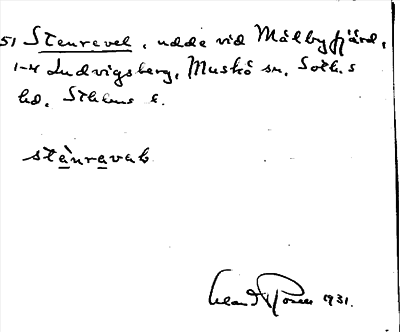 51 Stenrevel, udde vid Målbyfjärd,
1-4 Ludvigsberg, Muskö sn. Soth.s
hd. Sthlms l.
stànravəl
1931.